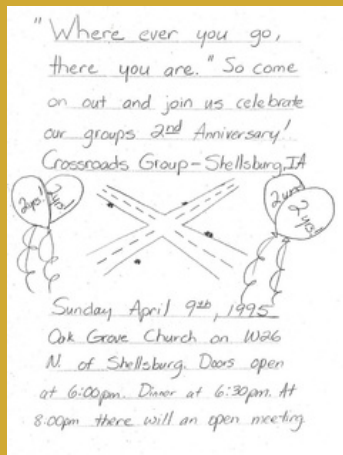 "Where ever you go,
there you are." So come
on out and join us celebrate
our groups 2nd Anniversary!
Crossroads Group-Shellsburg, IA
2yrs! 2yrs!
2yrs! 2yrs!
Sunday April 9th, 1995
Oak Grove Church on W26
N. of Shellsburg. Doors open
at 6:00pm. Dinner at 6:30pm. At
8:00pm there will an open meeting